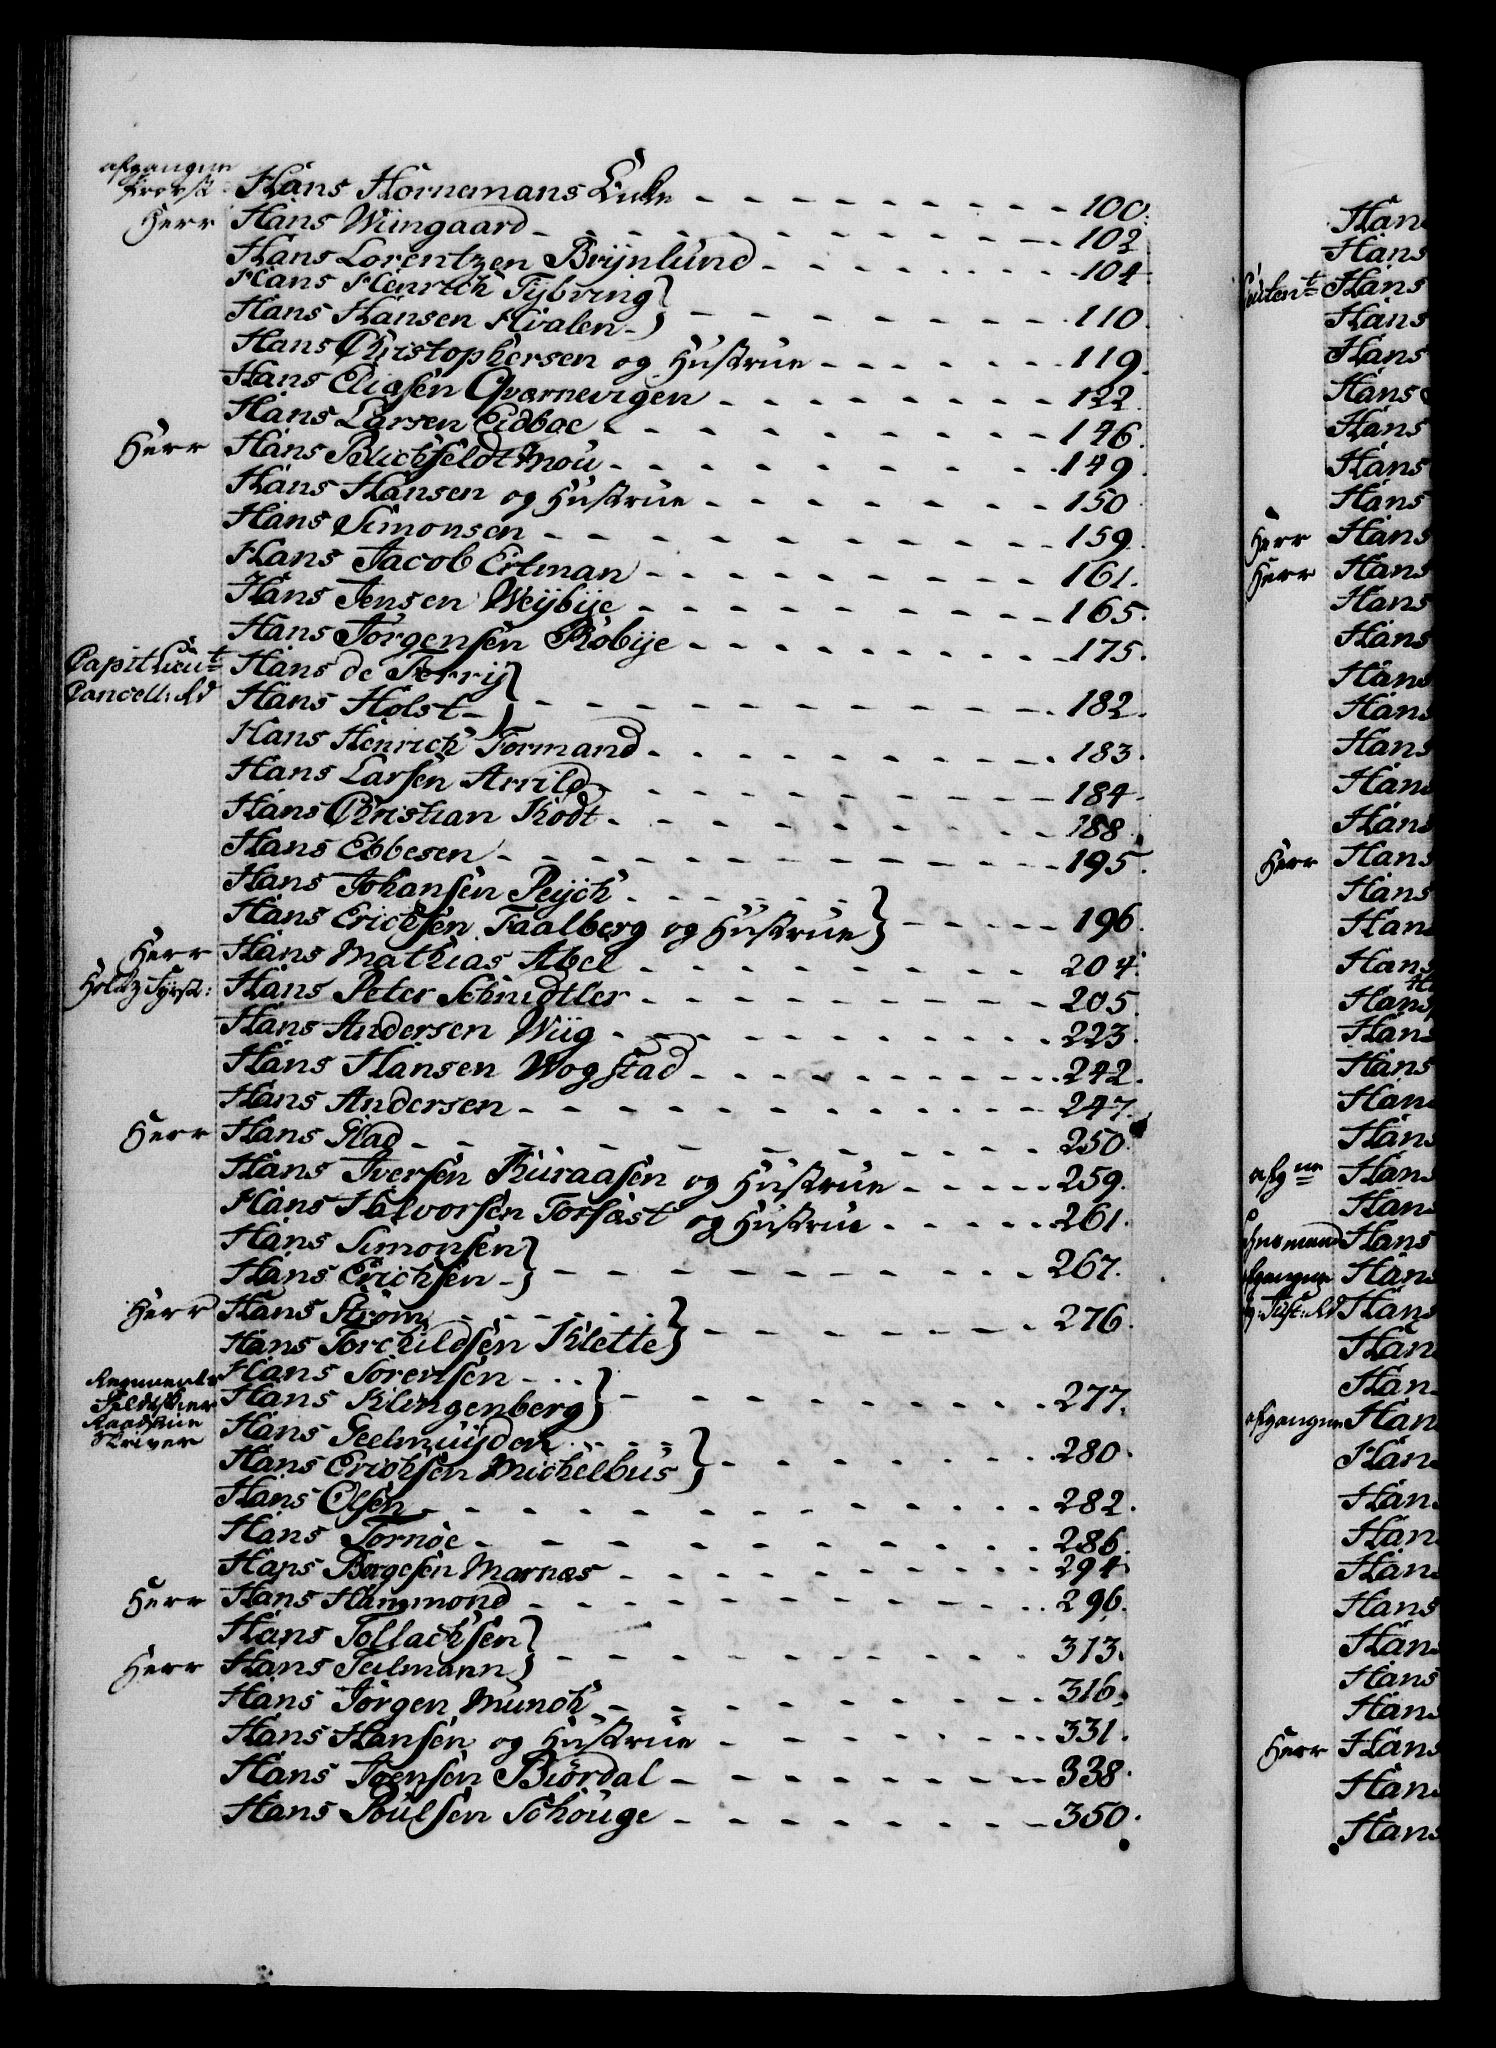 afgangne
Provst Hans Hornemans Enke 100.
Herr Hans Wiingaard 102.
Hans Lorentzen Brijnlund 104.
Hans Henrich Tijbring
Hans Hansen Hvalen 110.
Hans Christophersen og Hustrue 119.
Hans Eliasen Qvarnevigen 122.
Hans Larsen Eidboe 146.
Herr Hans Blichfeldt Mou 149.
Hans Hansen og Hustrue 150
Hans Simonsen 159.
Hans Jacob Ertman 161.
Hans Jensen Weijbije 165.
Hans Jörgensen Robije 175.
Capit Lieut Hans de Ferrij
Cancell: Rd Hans Holst 182.
Hans Henrich Formand 183.
Hans Larsen Arrild 184.
Hans Christian Kodt 188.
Hans Ebbesen 195.
Hans Johansen Reijch
Hans Erichsen Faalberg og Hustrue 196.
Herr Hans Mathias Abel 204.
Hans Peter Schnidtler 205.
Hans Andersen Wiig 223.
Hans Hansen Wogstad 242.
Hans Andersen 247.
Herr Hans Glad 250.
Hans Iversen Kuraasen og Hustrue 259.
Hans Halvorsen Torsæst og Hustrue 261.
Hans Simonsen
Hans Erichsen 267.
Herr Hans Ström
Hans Torchildsen Klette 276.
Hans Sörensen
Regiments
Feldskier Hans Klingenberg 277.
Raadstue
Skriver Hans Geelmuijden
Hans Erichsen Michelbus 280.
Hans Olsen 282.
Hans Tornöe 286.
Hans Borgesen Marnæs 294.
Herr Hans Hammond 296.
Hans Tollachsen
Herr Hans Teilmann 313.
Hans Jörgen Munch 316.
Hans Hansen og Hustrue 331.
Hans Joensen Biördal 338.
Hans Poulsen Schouge 350.
Hans
Hans
Lieutent Hans
Hans
Hans
Hans
Hans
Hans
Hans
Herr Hans
Herr Hans
Hans
Hans
Hans
Hans
Hans
Hans
Hans
Herr Hans
Hans
Hans
Hans
Hans
Hans
Hans
Hans
Hans
afgne Hans
Hans
Hans
Hans
Hans
Hans
Hans
afgangne Hans
Hans
Hans
Hans
Hans
Hans
Hans
Hans
Hans
Herr Hans
Hans
Hans